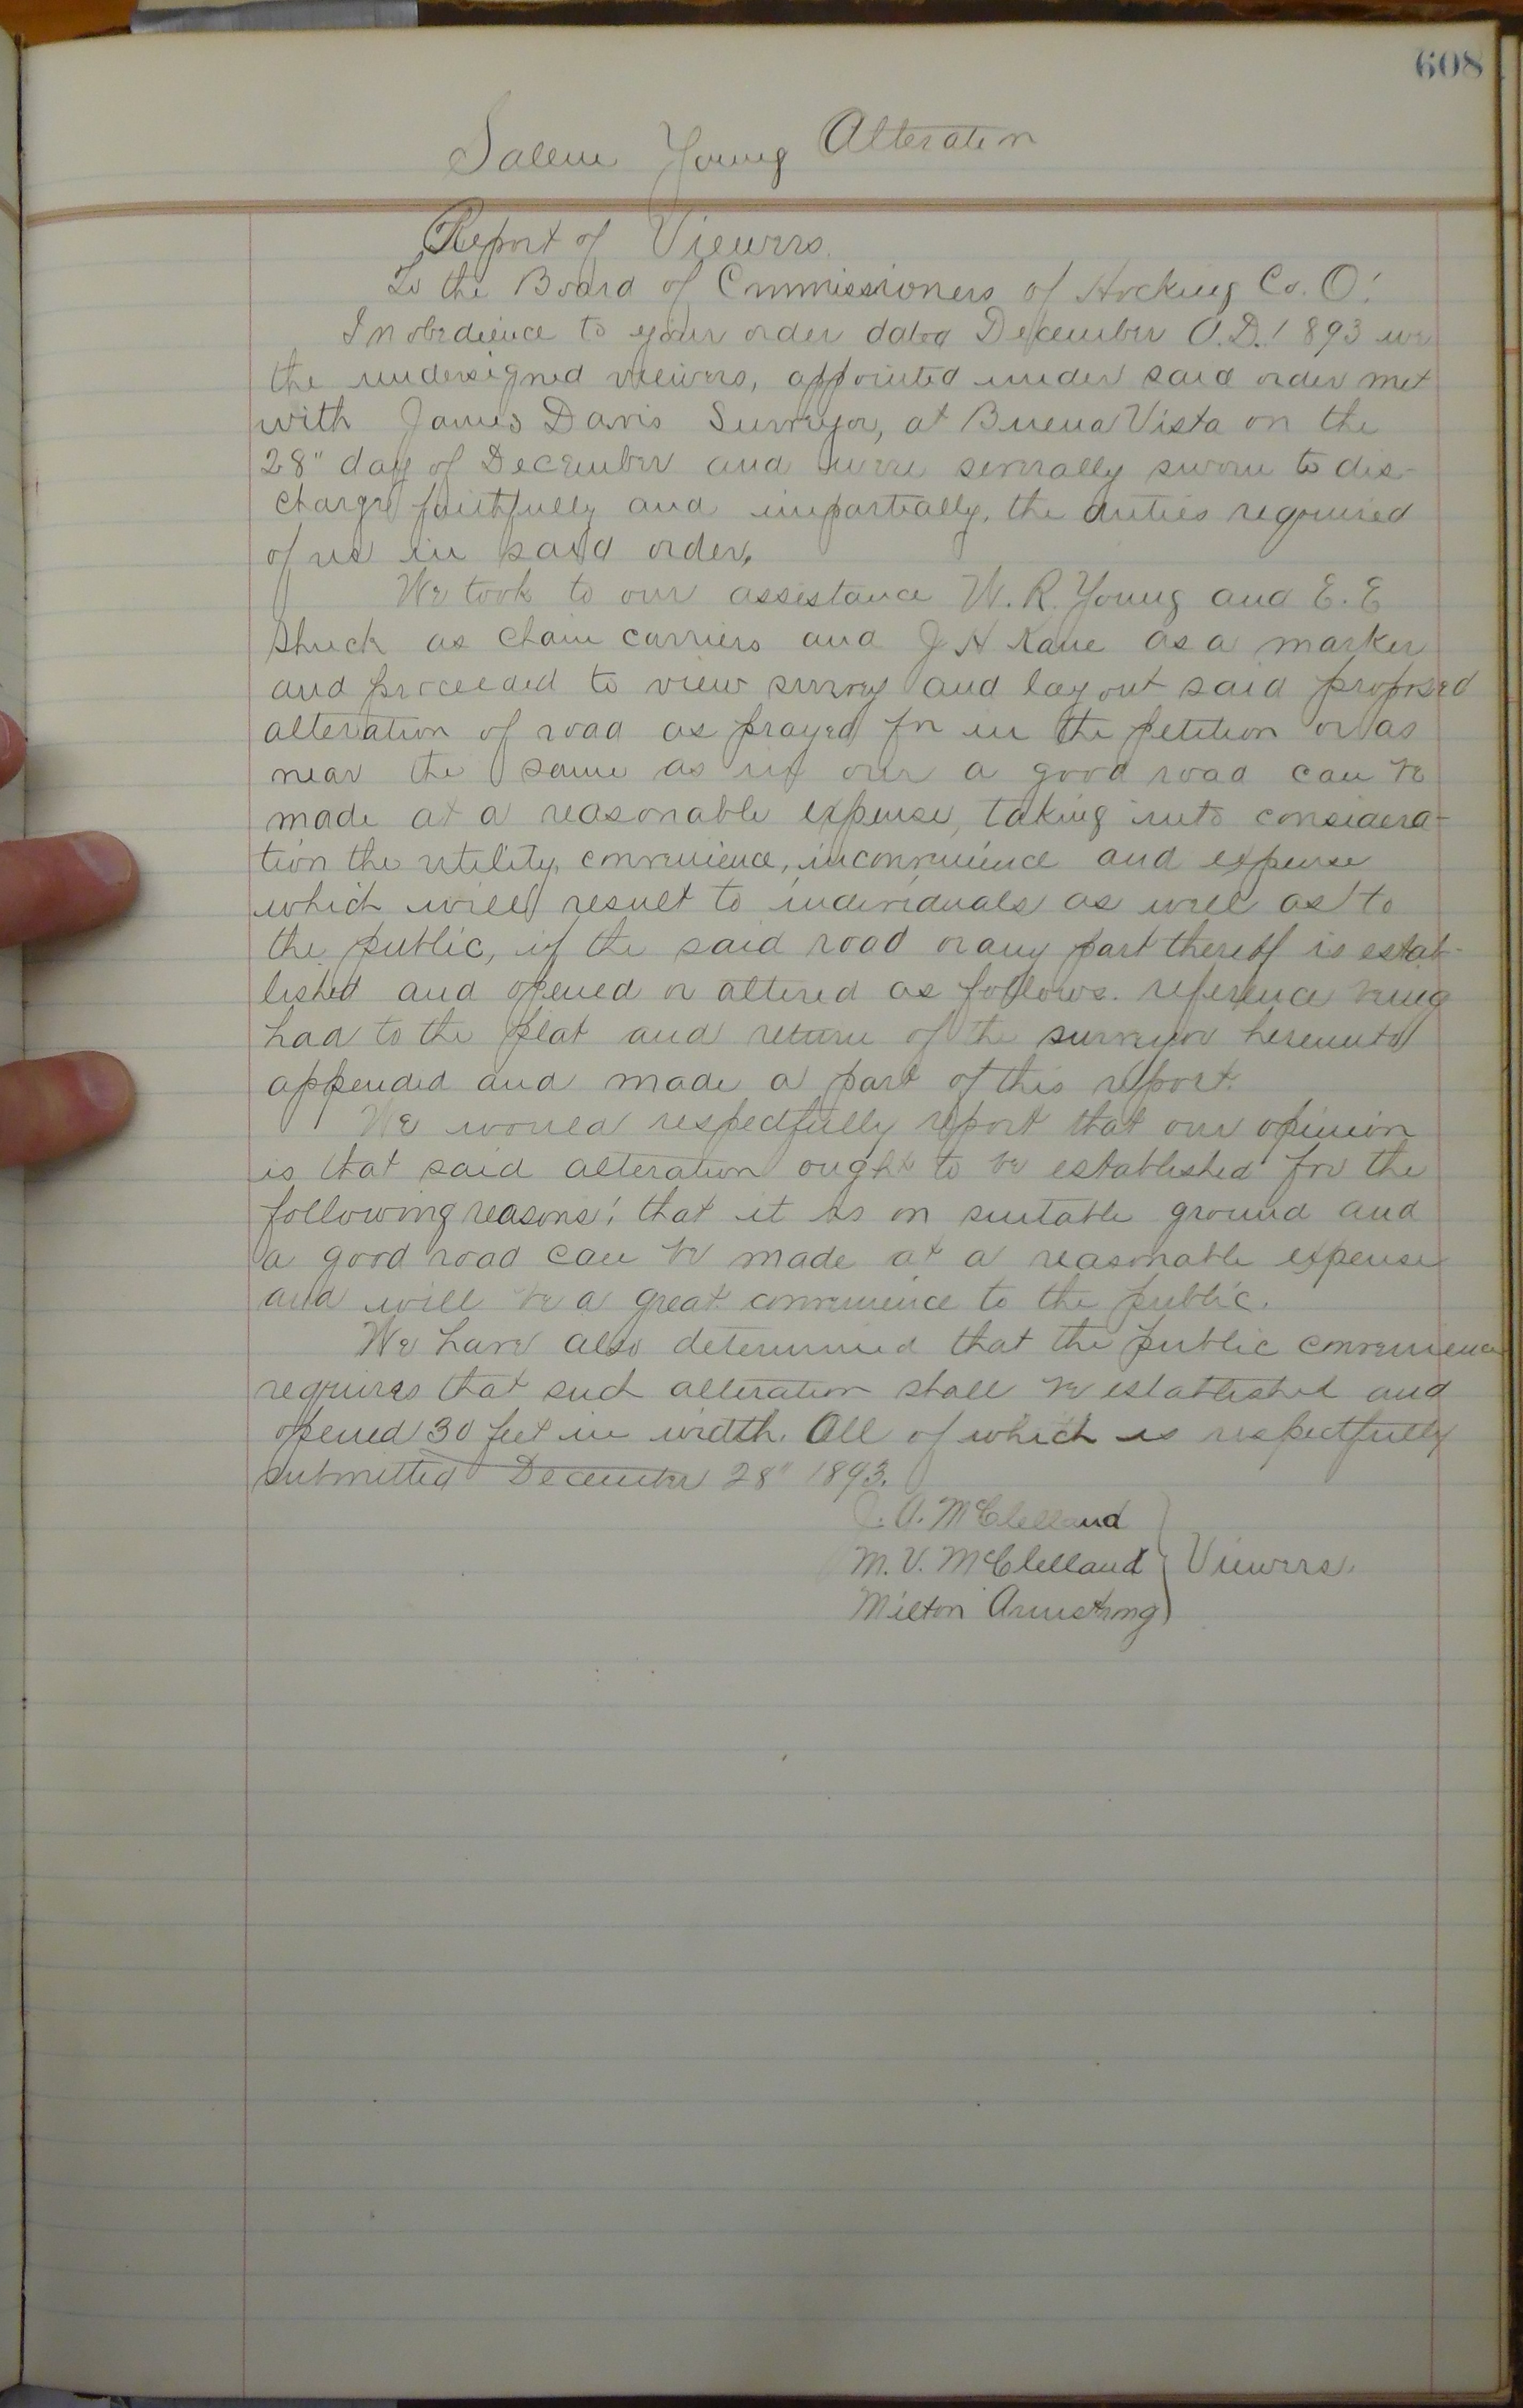 608
Salem Young Alteration
Report of Viewers.
To the Board of Commissioners of Hocking Co. O:
In obedience to your order dated December A.D. 1893 we
the undersigned viewers, appointed under said order met
with James Davis Surveyor, at Buena Vista on the
28" day of December and were severally sworn to dis-
charge faithfully and impartially, the duties required
of us in said order.
We took to our assistance W. R. Young and E. E
Shuck as chain carriers and J H Kane as a marker
and proceeded to view survey and lay out said proposed
alteration of road as prayed for in the petition or as
near the same as in our a good road can be
made at a reasonable expense, taking into considera-
tion the utility, convenience, inconvenience and expense
which will result to individuals as well as to
the public, if the said road or any part thereof is estab-
lished and opened or altered as follows. reference being
had to the plat and return of the surveyor hereunto
appended and made a part of this report.
We would respectfully report that our opinion
is that said alteration ought to be established for the
following reasons: that it is on suitable ground and
a good road can be made at a reasonable expense
and will be a great convenience to the public.
We have also determined that the public convenience
requires that such alteration shall be established and
opened 30 feet in width. All of which is respectfully
submitted December 28" 1893.
A. McClelland
M. V. McClelland } Viewers.
Milton Armstrong